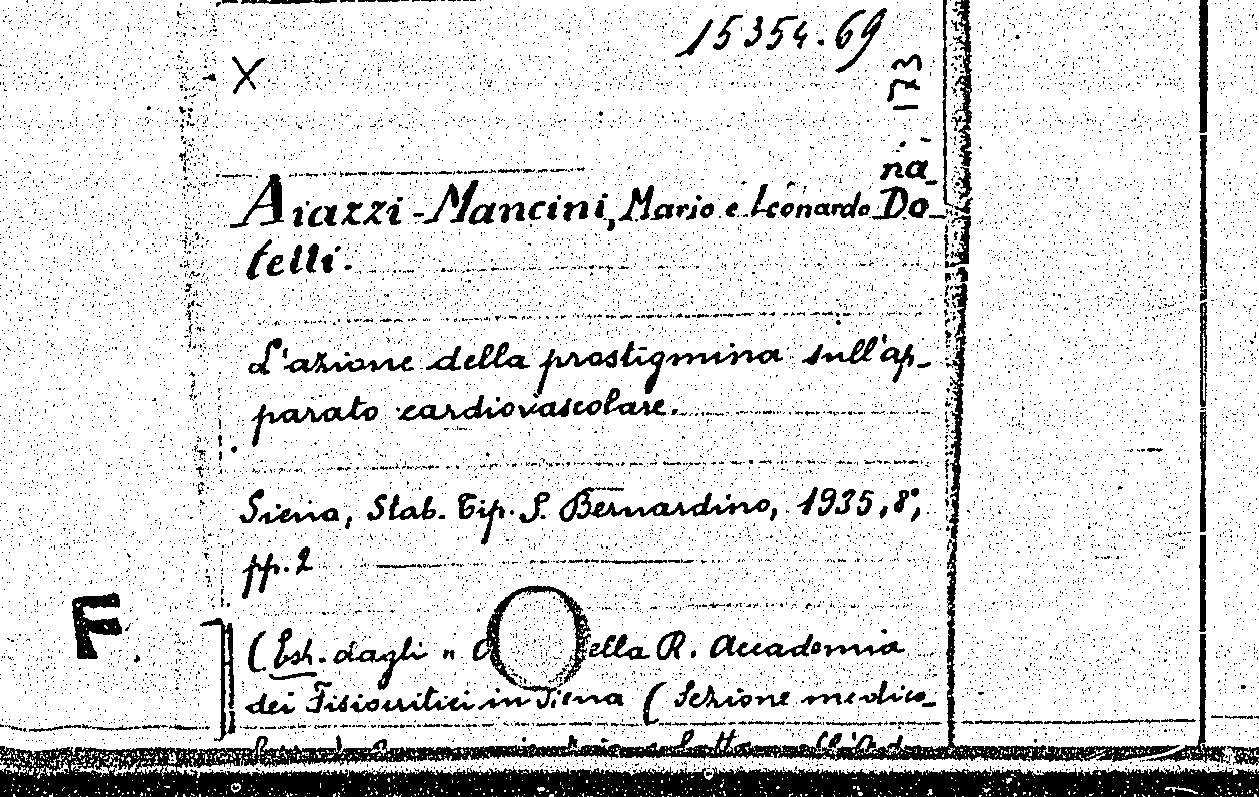 15354.69
X
173
na_
Aiazzi-Mancini, Mario e Leonardo Do_
telli.
L'azione della prostigmina sull'ap_
parato cardiovascolare.
Siena, Stab. Tip. S. Bernardino, 1935, 8°,
pp. 2
F
(Estr. dagli " ella R. Accademia
dei Fisiocritici in Siena (Sezione medico_